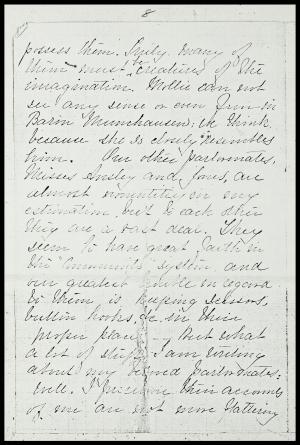 8
possess them. Truly, many of
them must be creatures of the
imagination. Mollie can not
see any sense or even fun in
Baron Munchausen; we think
because she so closely resembles
him. Our other parlormates,
Misses Ansley and Jones, are
almost nonentities in my
estimation, but to each other
they are a vast deal. They
seem to have great faith in
the "Community" system and
our greatest trouble in regard
to them is keeping scissors,
button hooks, &c in their
proper place. But what
a lot of stuff I am writing
about my beloved parlormates:
well. I presume their accounts
of me are not more flattering